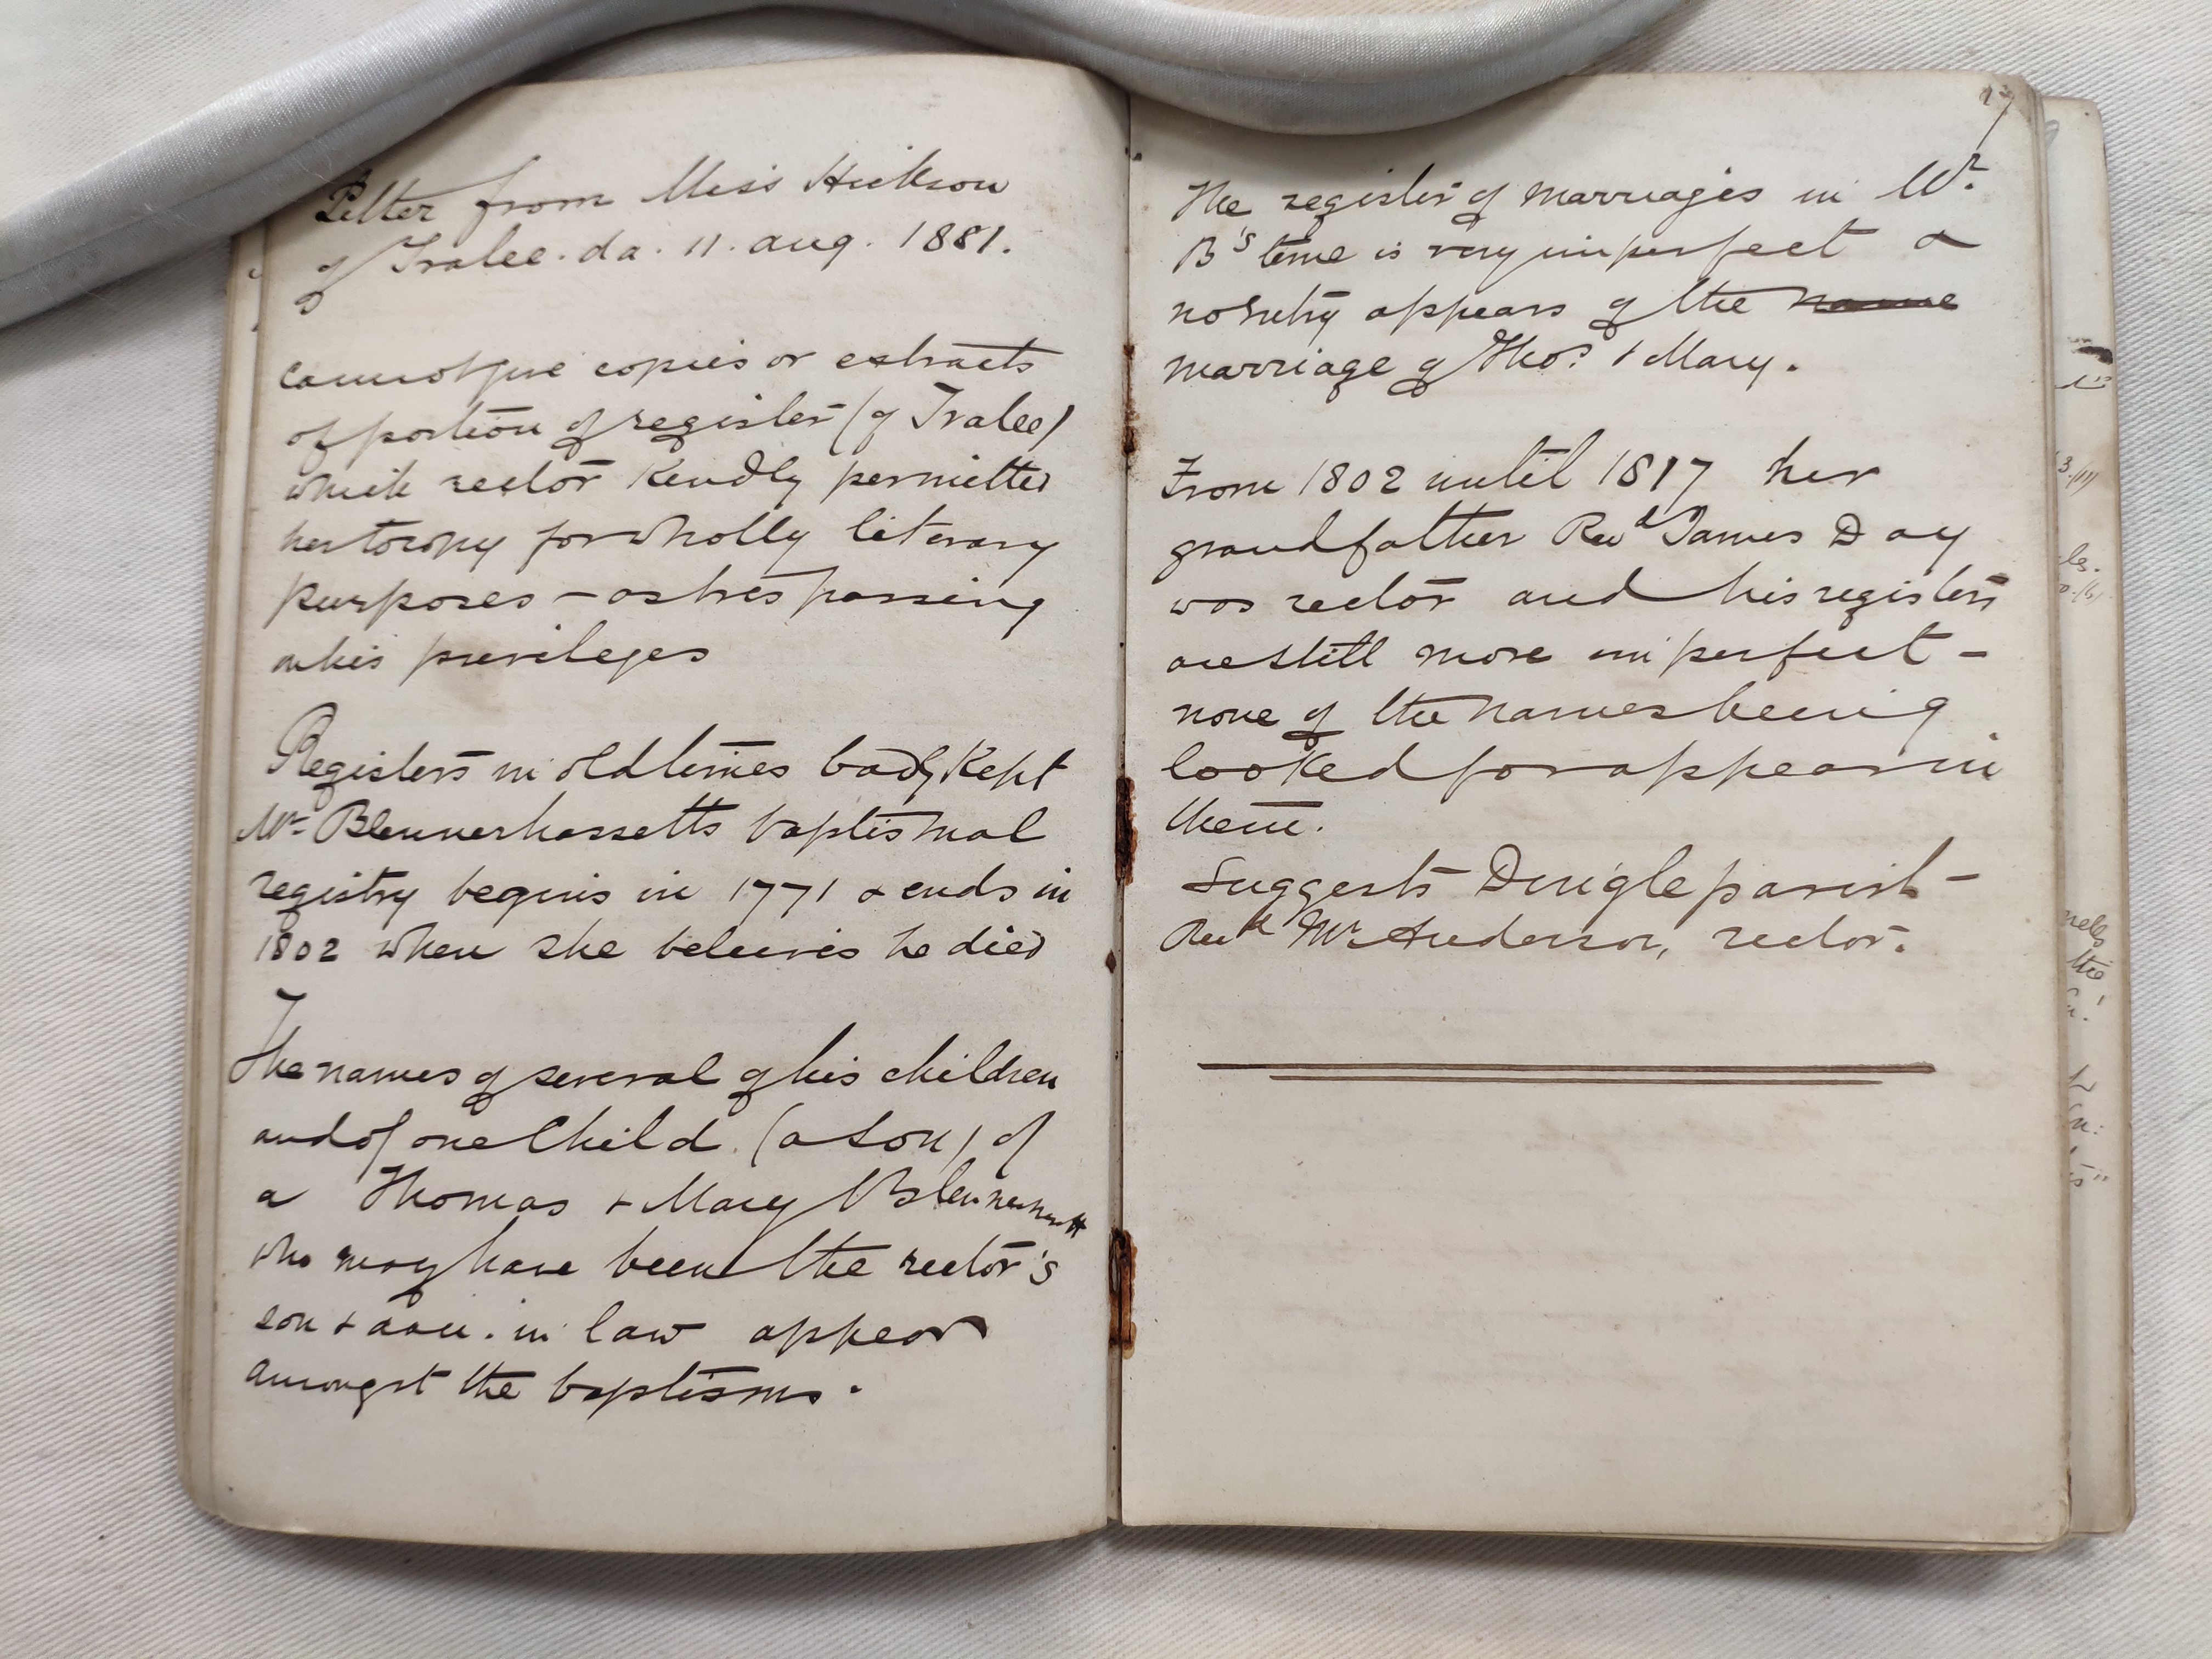 Letter from Miss Hickson
of Tralee. da. 11. aug. 1881.
cannot give copies or extracts
of portion of register (of Tralee)
which rector kindly permitted
her to copy for wholly literary
purposes – as trespassing
on his privileges
Registers in old times badly kept
Mr Blennerhassetts baptismal
registry begins in 1771 & ends in
1802 when she believes he died
The names of several of his children
and of one Child (a son) of
a Thomas & Mary Blennerhassett
who may have been the rector's
son & dau. in law appear
amongst the baptisms.
The register of marriages in Mr.
B's time is very imperfect &
no entry appears of the name
marriage of Thos. & Mary.
From 1802 until 1817 her
grandfather Revd James Day
was rector and his registers
are still more imperfect –
none of the names being
looked for appear in
them.
Suggests Dingle parish –
Revd Mr Anderson, rector.